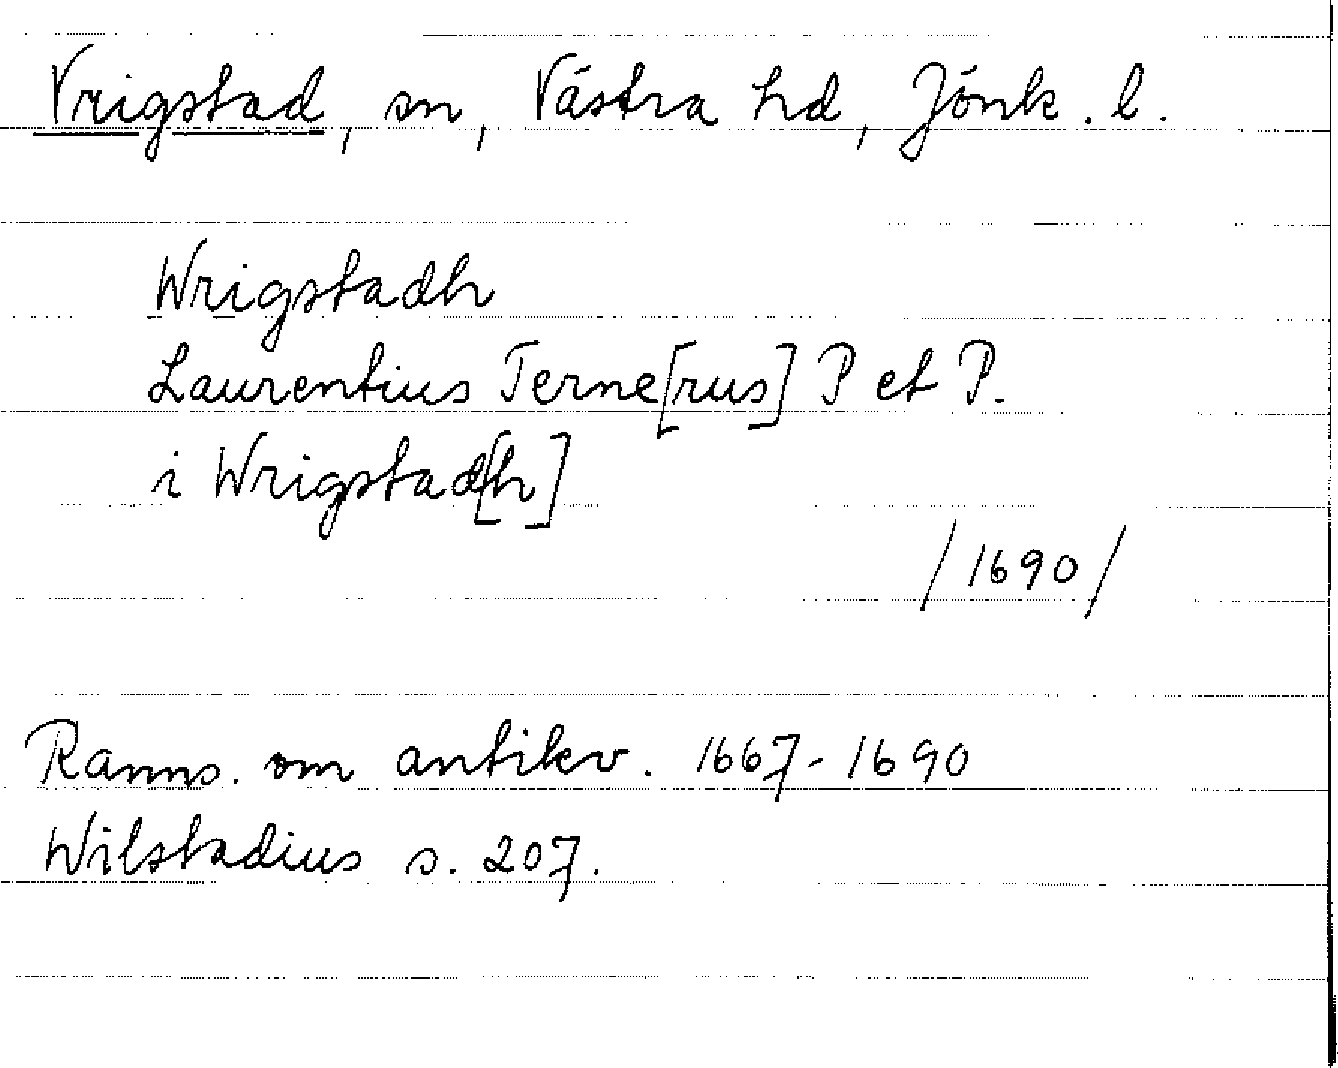 Vrigstad, sn, Västra hd, Jönk. l.
Wrigstadh
Laurentius Terne[rus] P et P.
i Wrigstad[h]
/1690/
Ranns. om antikv. 1667-1690
Wilstadius s. 207.